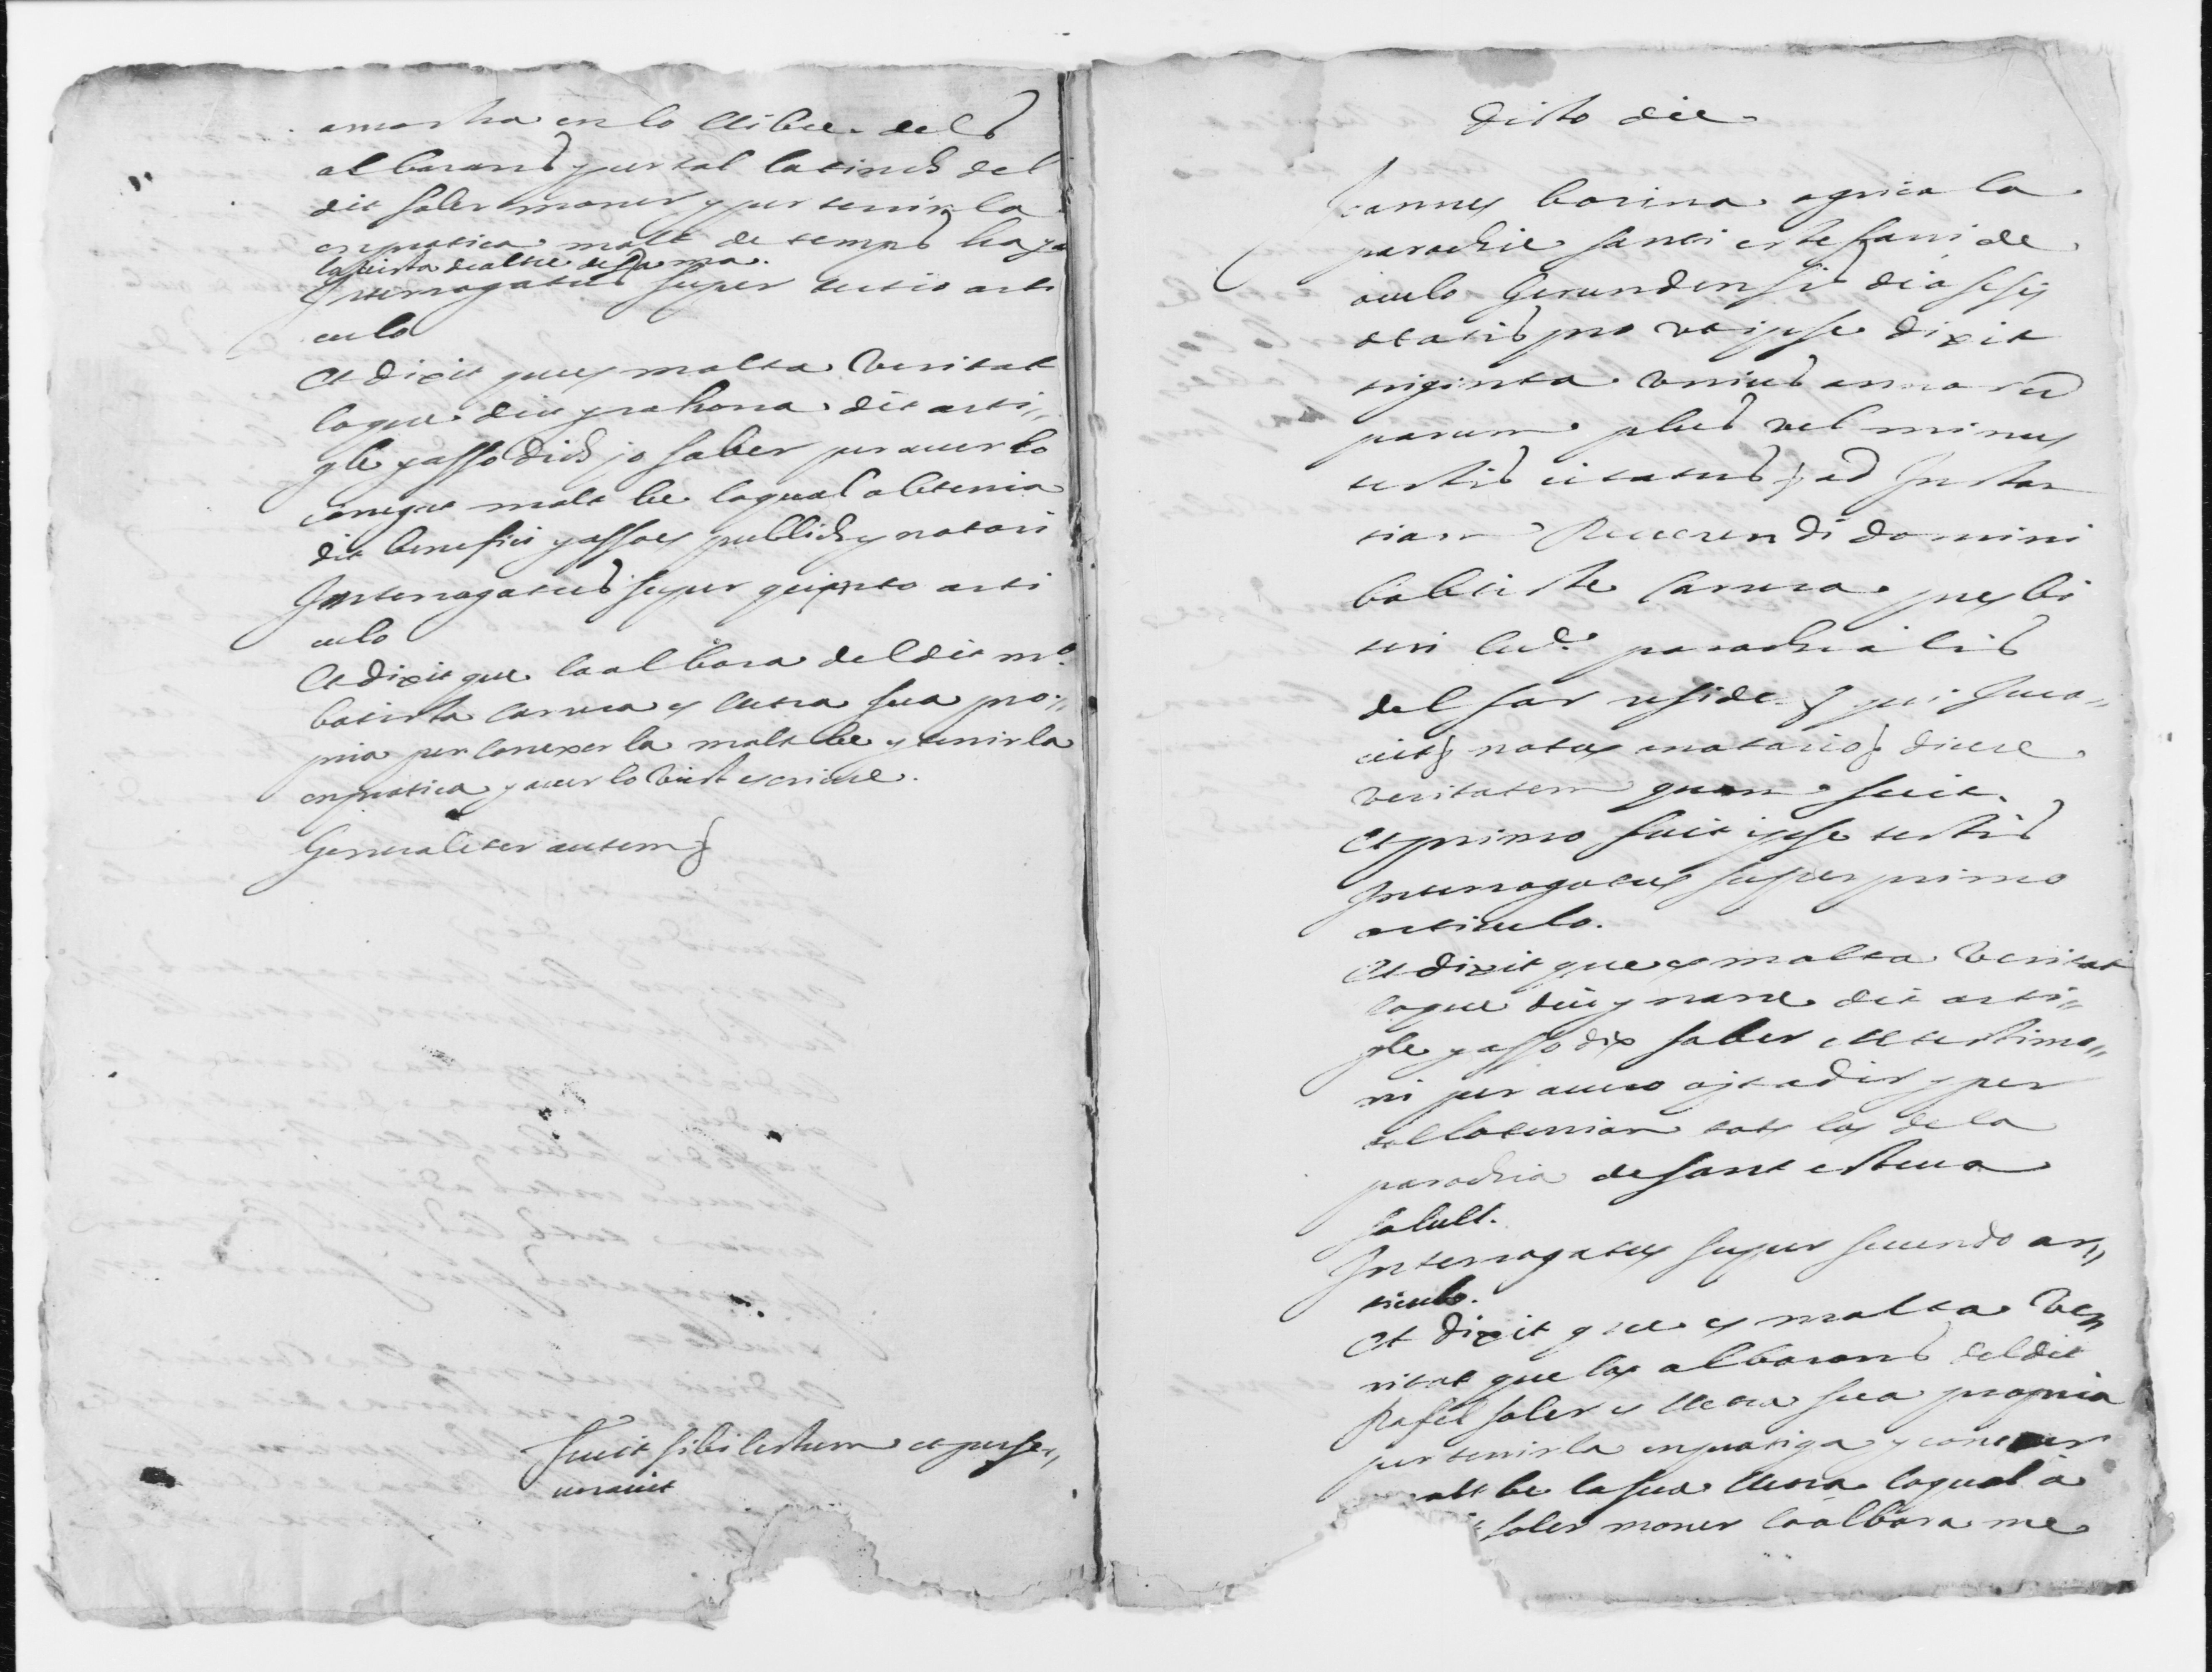 amostra en lo llibre dels
albarans y per tal la tinch del
dit soler moner y per tenirla
en pratica molt de temps ha ya
la vista de altre de sa ma.
Interrogatus super tertio arti
culo
Et dixit que es molta veritat
loque diu y rahona dit arti,,
gle y asso dich jo saber per auerlo
conegut molt be loqual obtenia
dit benefici y asso es publich y notori
Interrogatus super quinto arti
culo
Et dixit que la albara del dit mo
batista carrera es lletra sua pro,,
pria per conexerla molt be y tenirla
en pratica y auerlo vist escriure.
Generaliter autem
fuit sibi lectum et perse,,
uerauit
dicto die
Joannes barina agricola
parochie sancti estefani de
aculo Gerundensis diosesis
etatis pro ut ipse dixit
triginta unius annorum
parum plus vel minus
testis citatus ad Instan
tiam Reuerendi domini
babtiste carrera presbi
teri parochialis
del far reside qui Jura,,
uit dicere
veritatem quam sciet.
Et primo fuit ipse testis
Interrogatus super primo
articulo.
Et dixit que es molta veritat
loque diu y narre dit arti,,
gle y asso dix saber ell testimo,,
ni per aueo oyt a dir y per
tal lo tenian tots los de la
parochia de sant esteua
salull.
Interrogatus super secundo ar,,
ticulo.
Et dixit que es molta ve,,
ritat que los albarans del dit
Rafel soler es lletra sua propria
per tenirla en pratiga y conexer
molt be la sua lletra loqual a
soler moner la albara me